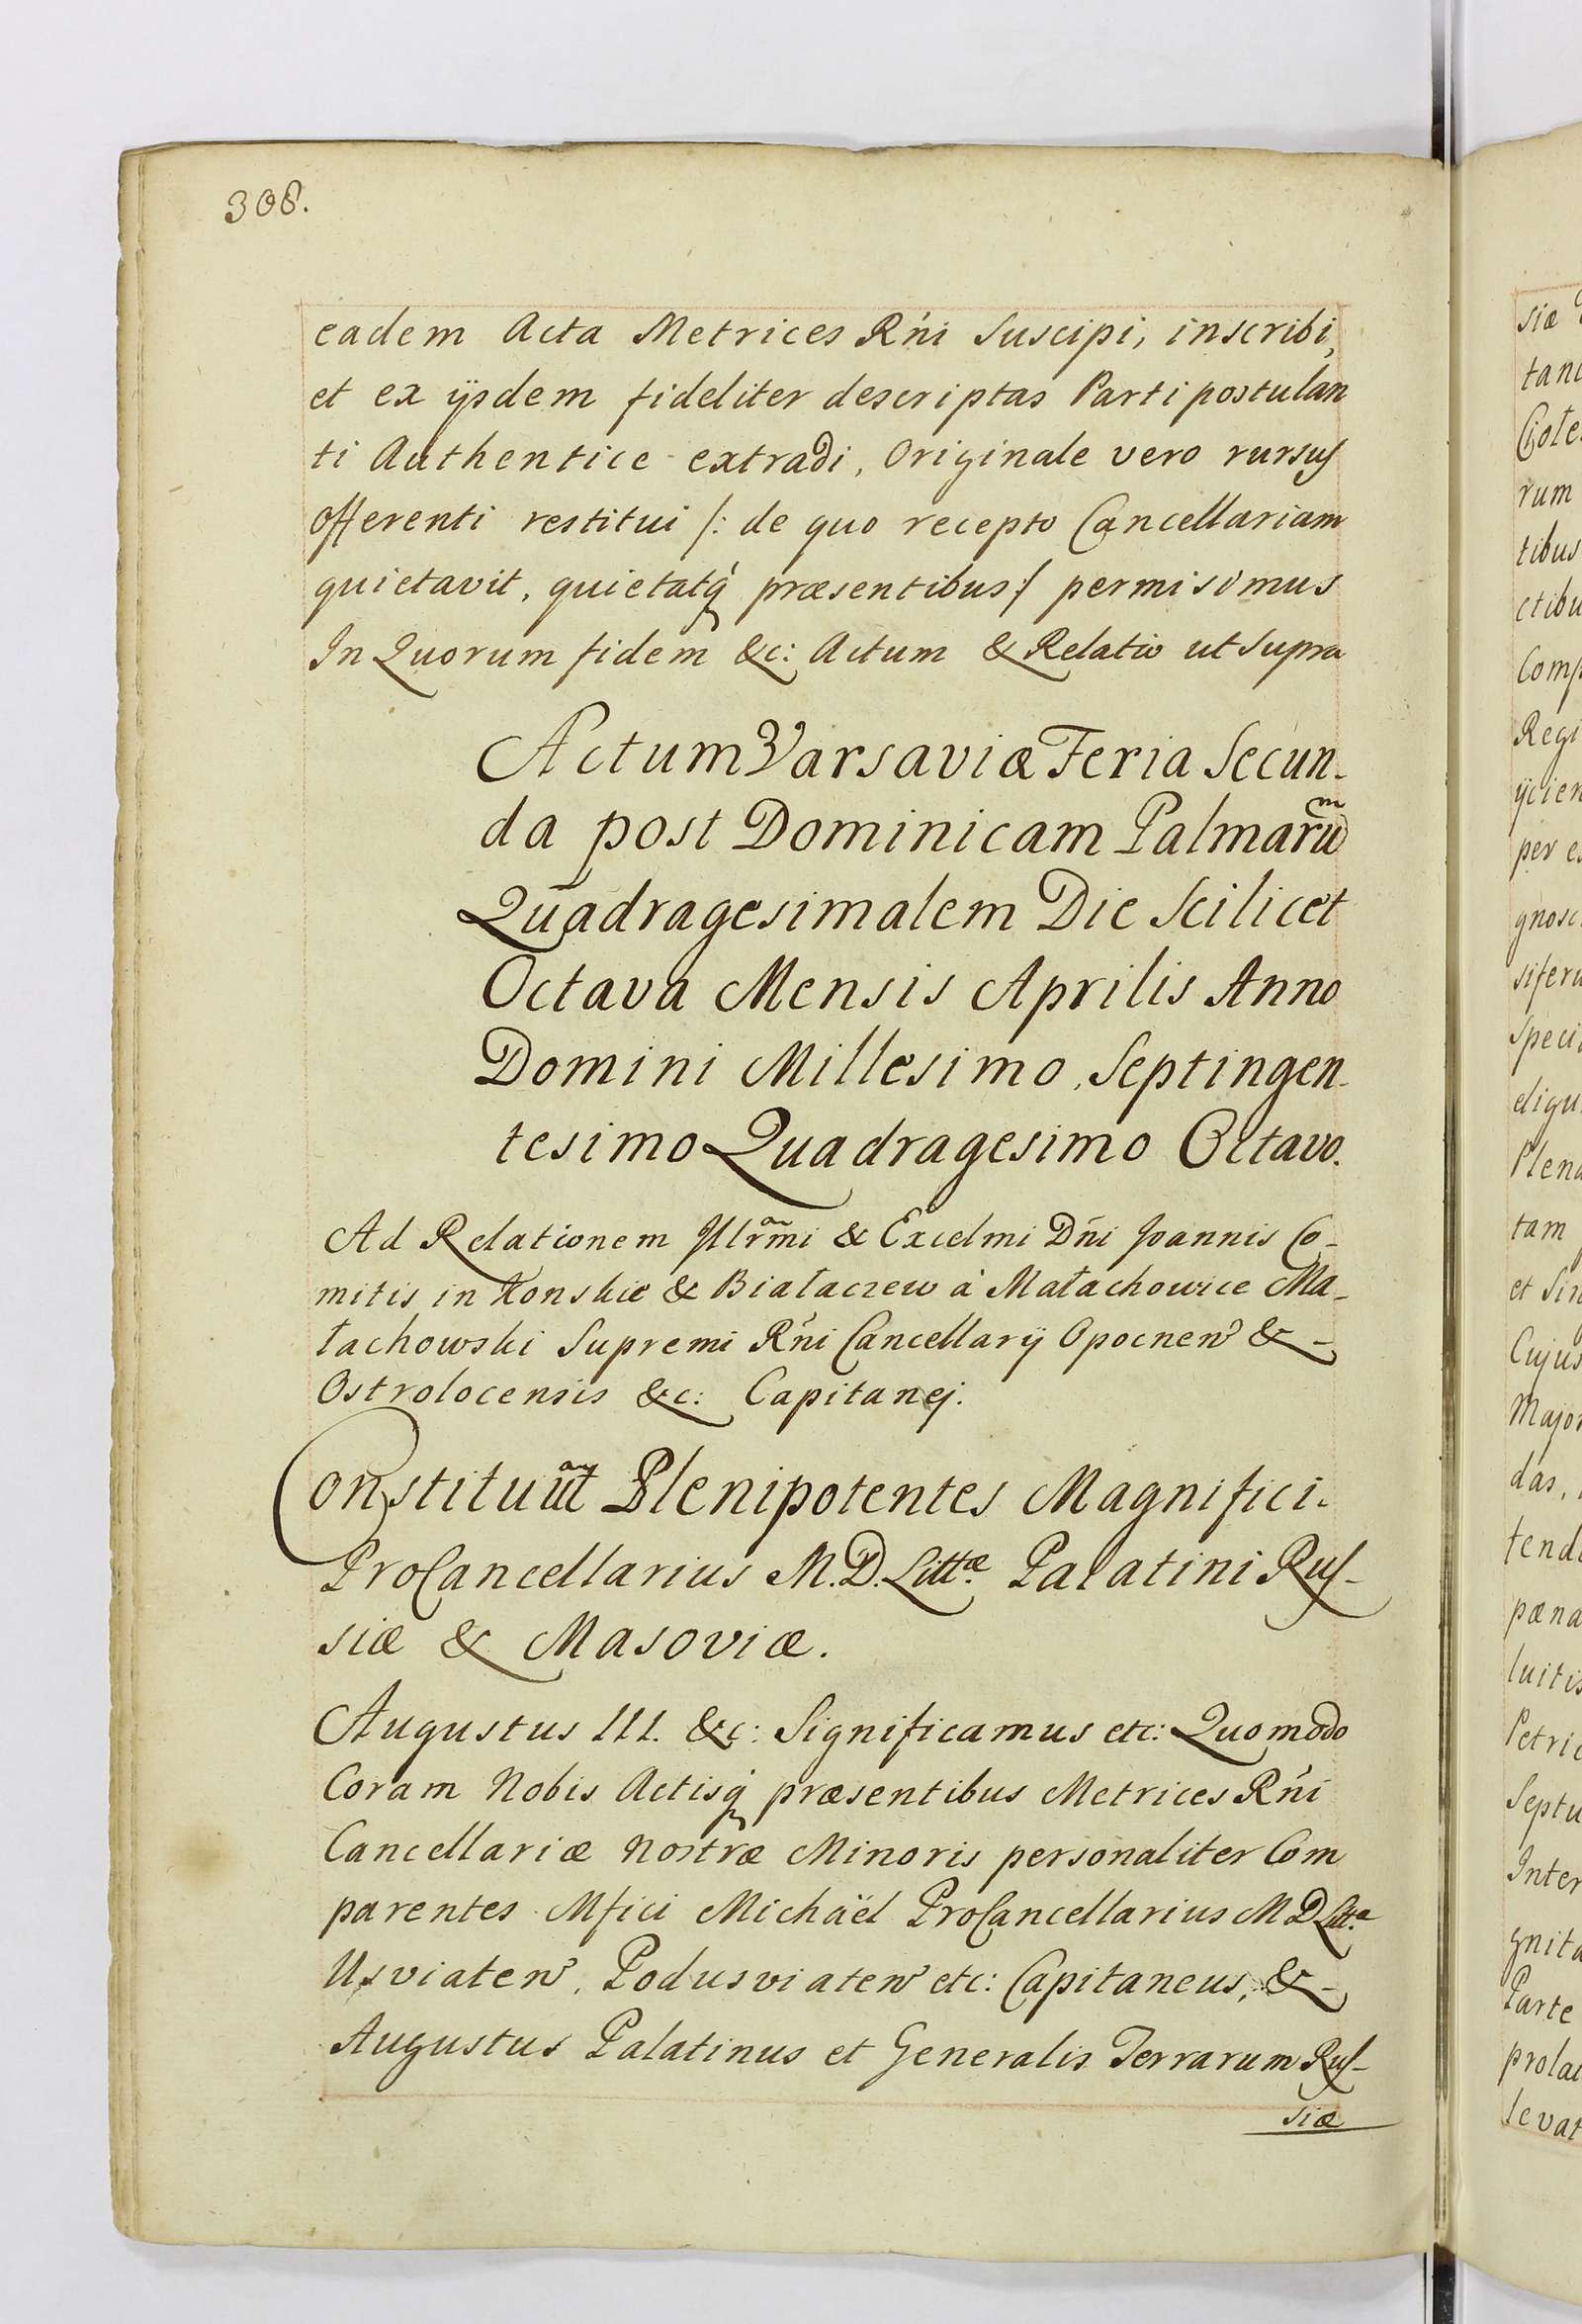 308.
eadem Acta Metrices Rńi Suscipi, inscribi,
et ex ijsdem fideliter descriptas Parti postulan
ti Authentice extradi, Originale vero rursus
offerenti restitui /: de quo recepto Cancellariam
quietavit, quietatq́ præsentibus :/ permisimus
In Quorum fidem &c: Actum & Relatio ut Supra
Actum Varsaviæ Feria Secun-
da post Dominicam Palmarũm
Quadragesimalem Die Scilicet
Octava Mensis Aprilis Anno
Domini Millesimo Septingen-
tesimo Quadragesimo Octavo.
Ad Relationem Illrm̃i & Excelmi Dñi Joannis Co-
mitis in Konskie & Białaczew à Małachowice Ma-
łachowski Supremi Rńi Cancellarij Opocnen &-
Ostrolocensis &c: Capitanej.
Constituũt Plenipotentes Magnifici
ProCancellarius M.D. Littæ Palatini Rus-
siæ & Masoviæ.
Augustus III. &c: Significamus etc: Quomodo
Coram Nobis Actisq́ præsentibus Metrices Rńi
Cancellariæ Nostræ Minoris personaliter Com
parentes Mfici Michaël ProCancellarius M D Litt.æ
Usviaten, Podusviaten etc: Capitaneus, &-
Augustus Palatinus et Generalis Terrarum Rus-
siæ
siæ
tan
rum
tibus
ctibu
Comp
Regi
ijcien
per e
gnosc
sifern
speci
eligu
Plena
tam
et Sin
Cujus
Major
das,
tend
pæna
luitis
Petric
Septu
Inter
gnita
Parte
prola
levat